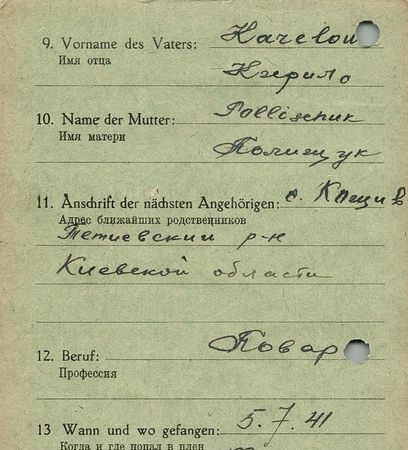 9. Vorname des Vaters:
Имя отца
10. Name der Mutter: Pollischuk
Имя матери
Полищук
11. Anschrift der nächsten Angehörigen: с.
Адрес ближайших родственников
Тетиевский р-н
Киевской области
12. Beruf: Повар
Профессия
13 Wann und wo gefangen: 5.7.41
Когда и где попал в плен